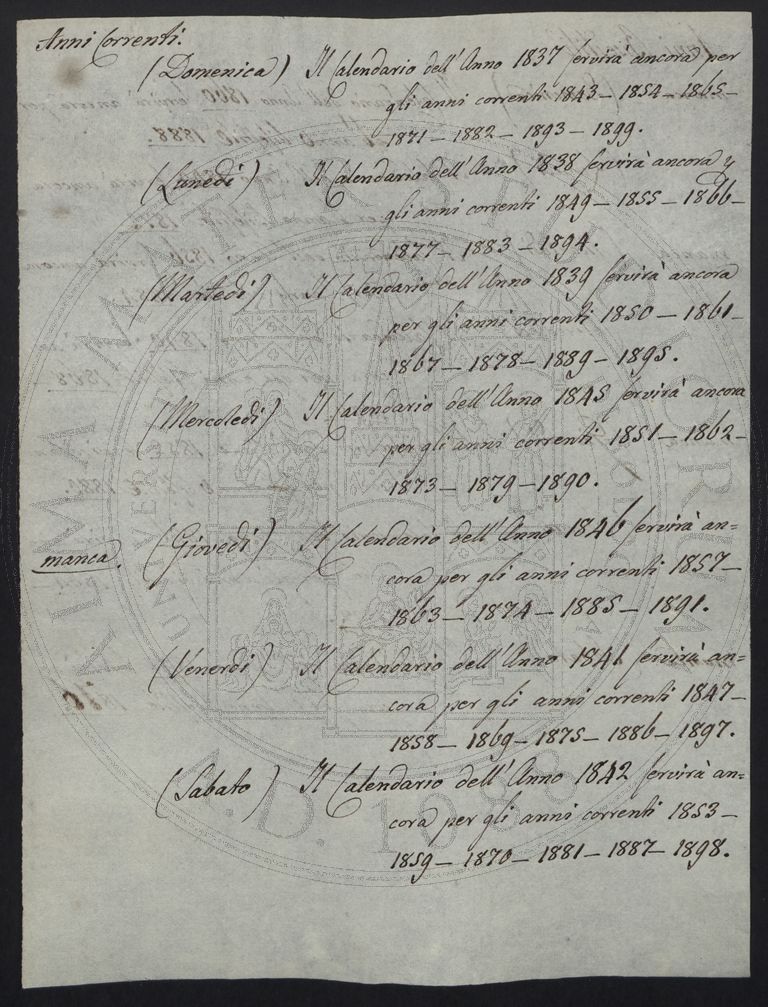 Anni Correnti.
(Domenica) Il Calendario dell'Anno 1837 servirà ancora per
gli anni correnti 1843 – 1854 – 1865 –
1871 – 1882 – 1893 – 1899.
(Lunedì) Il Calendario dell'Anno 1838 servirà ancora
gli anni correnti 1849 – 1855 – 1866 –
1877 – 1883 – 1894.
(Martedì) Il Calendario dell'Anno 1839 servirà ancora
per gli anni correnti 1850 – 1861 –
1867 – 1878 – 1889 – 1895.
(Mercoledì) Il Calendario dell'Anno 1845 servirà ancora
per gli anni correnti 1851 – 1862 –
1873 – 1879 – 1890.
manca. (Giovedì) Il Calendario dell'Anno 1846 servirà an=
cora per gli anni correnti 1857 –
1863 – 1874 – 1885 – 1891.
(Venerdì) Il Calendario dell'Anno 1841 servirà an=
cora per gli anni correnti 1847 –
1858 – 1869 – 1875 – 1886 – 1897.
(Sabato) Il Calendario dell'Anno 1842 servirà an=
cora per gli anni correnti 1853 –
1859 – 1870 – 1881 – 1887 – 1898.